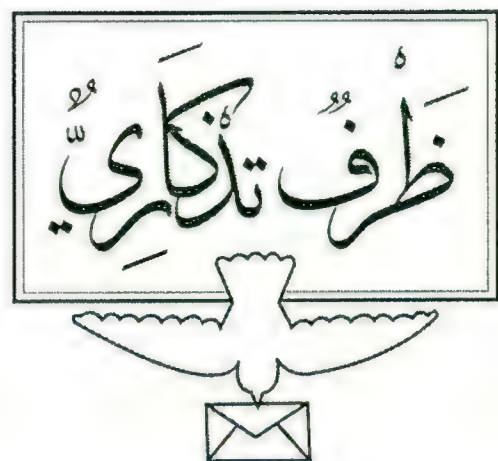 ظَرْفٌ تذْكَارِيٌّ